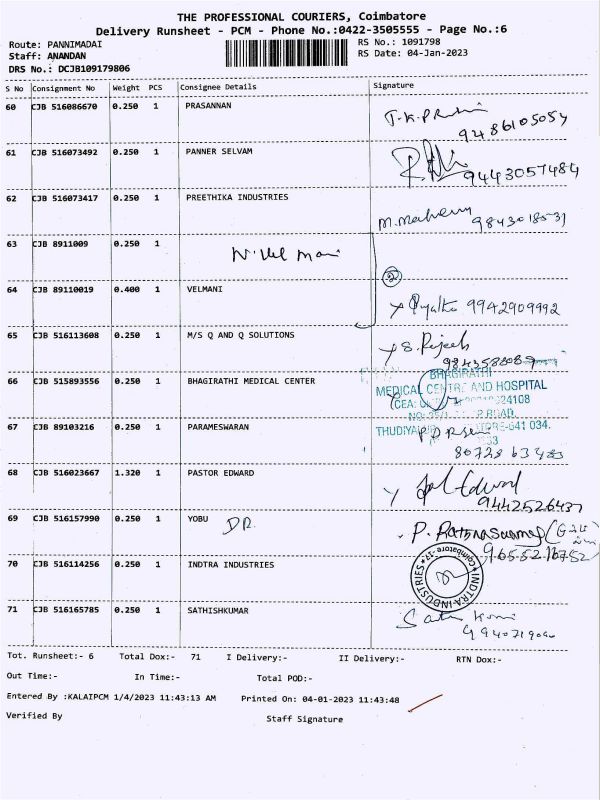 THE PROFESSIONAL COURIERS, Coimbatore
Delivery Runsheet - PCM - Phone No.:0422-3505555 - Page No.:6
Route: PANNIMADAI RS No.: 1091798
Staff: ANANDAN RS Date: 04-Jan-2023
DRS No.: DCJB109179806
S No Consignment No Weight PCS Consignee Details Signature
60 CJB 516086670 0.250 1 PRASANNAN
9486105054
61 CJB 516073492 0.250 1 PANNER SELVAM
9443057484
62 CJB 516073417 0.250 1 PREETHIKA INDUSTRIES
9843018531
63 CJB 8911009 0.250 1 N. Vel mani
2
64 CJB 89110019 0.400 1 VELMANI
9942909992
65 CJB 516113608 0.250 1 M/S Q AND Q SOLUTIONS S. Rajesh
66 CJB 515893556 0.250 1 BHAGIRATHI MEDICAL CENTER BHAGIRATHI
MEDICAL CENTRE AND HOSPITAL
67 CJB 89103216 0.250 1 PARAMESWARAN
68 CJB 516023667 1.320 1 PASTOR EDWARD Edward
9442526437
69 CJB 516157990 0.250 1 YOBU DR. P. Ratnaswamy
9655216752
70 CJB 516114256 0.250 1 INDTRA INDUSTRIES INDTRA INDUSTRIES Coimbatore-17
71 CJB 516165785 0.250 1 SATHISHKUMAR
Tot. Runsheet:- 6 Total Dox:- 71 I Delivery:- II Delivery:- RTN Dox:-
Out Time:- In Time:- Total POD:-
Entered By :KALAIPCM 1/4/2023 11:43:13 AM Printed On: 04-01-2023 11:43:48
Verified By Staff Signature